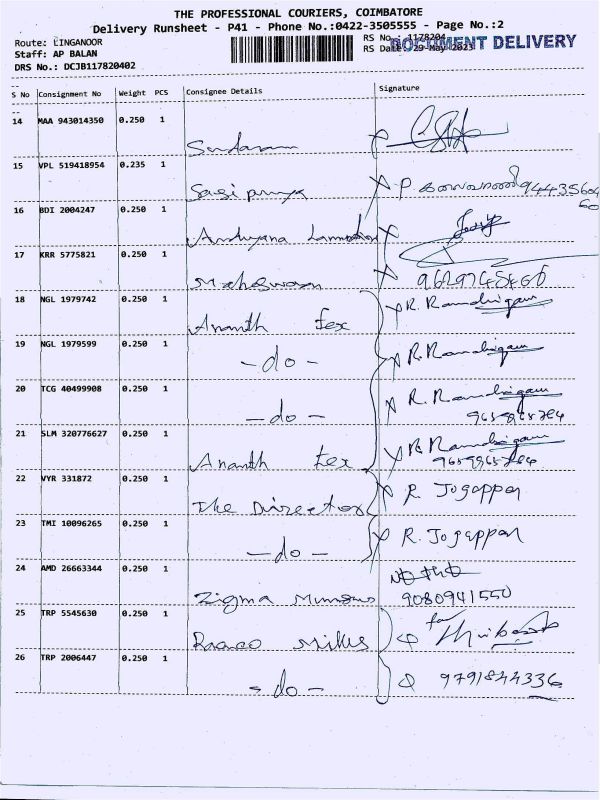 THE PROFESSIONAL COURIERS, COIMBATORE
Delivery Runsheet - P41 - Phone No.:0422-3505555 - Page No.:2
Route: LINGANOOR
RS No.: 1178204
DOCUMENT DELIVERY
Staff: AP BALAN
RS Date: 29-May-2023
DRS No.: DCJB117820402
S No Consignment No Weight PCS Consignee Details Signature
14 MAA 943014350 0.250 1
Sundaram
15 VPL 519418954 0.235 1
Sasi priya P
16 BDI 2004247 0.250 1
17 KRR 5775821 0.250 1
18 NGL 1979742 0.250 1
Ananth Tex R. Ramalingam
19 NGL 1979599 0.250 1
- do - R. Ramalingam
20 TCG 40499908 0.250 1
- do - R. Ramalingam
21 SLM 320776627 0.250 1
Ananth Tex R. Ramalingam
22 VYR 331872 0.250 1
The Director R. Jogappan
23 TMI 10096265 0.250 1
- do - R. Jogappan
24 AMD 26663344 0.250 1
Zigma 9080941550
25 TRP 5545630 0.250 1
Mills for
26 TRP 2006447 0.250 1
- do - 9791844336